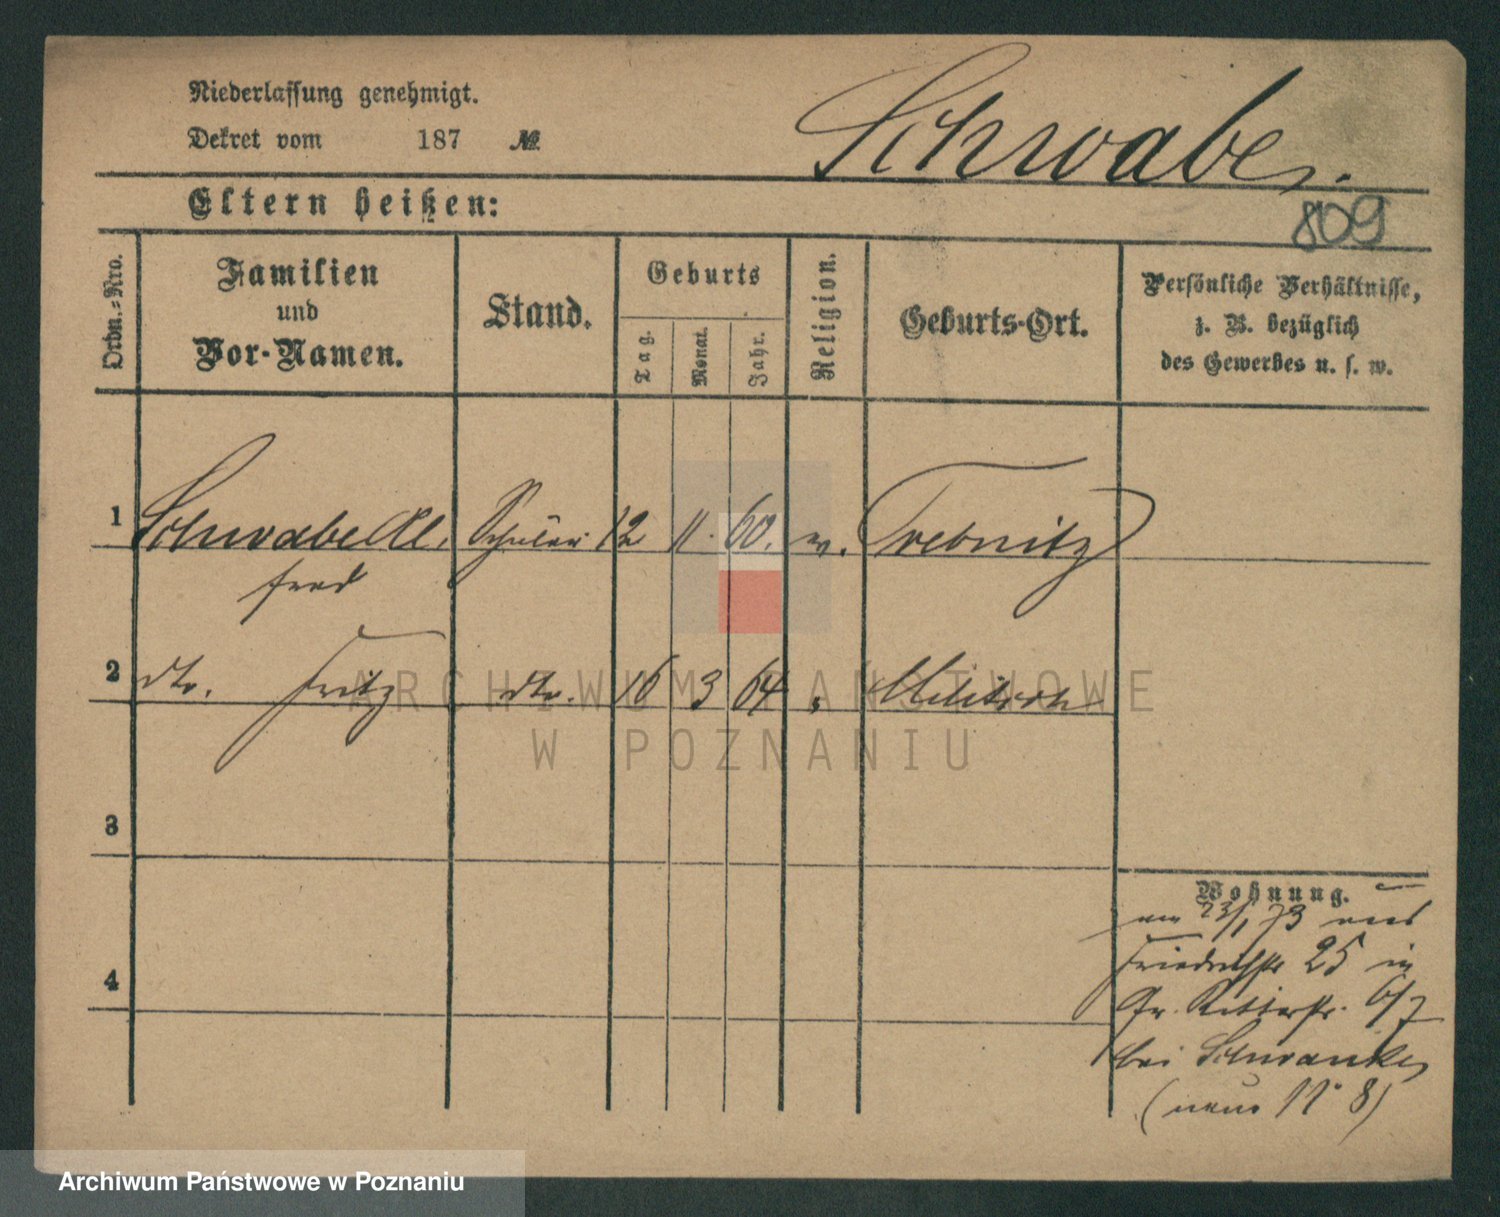 Niederlassung genehmigt.
Schwabe.
Dekret vom 187 №
Eltern heißen:
809
Ordn.-Nro.
Familien
und
Vor-Namen.
Stand.
Geburts
Tag.
Monat.
Jahr.
Religion.
Geburts-Ort.
Persönliche Verhältnisse,
z. B. bezüglich
des Gewerbes u. s. w.
1 Schwabe Al. Schüler 12 11. 60. Trebnitz
fred
2 dto. Fritz dto. 16 3 64 Militsch
ARCHIWUM PAŃSTWOWE
W POZNANIU
3
Wohnung.
23/1 73
Friedrichstr 25 in
4
Gr. Ritterstr. 6/7
bei Schwanke
(neue N° 8)
Archiwum Państwowe w Poznaniu